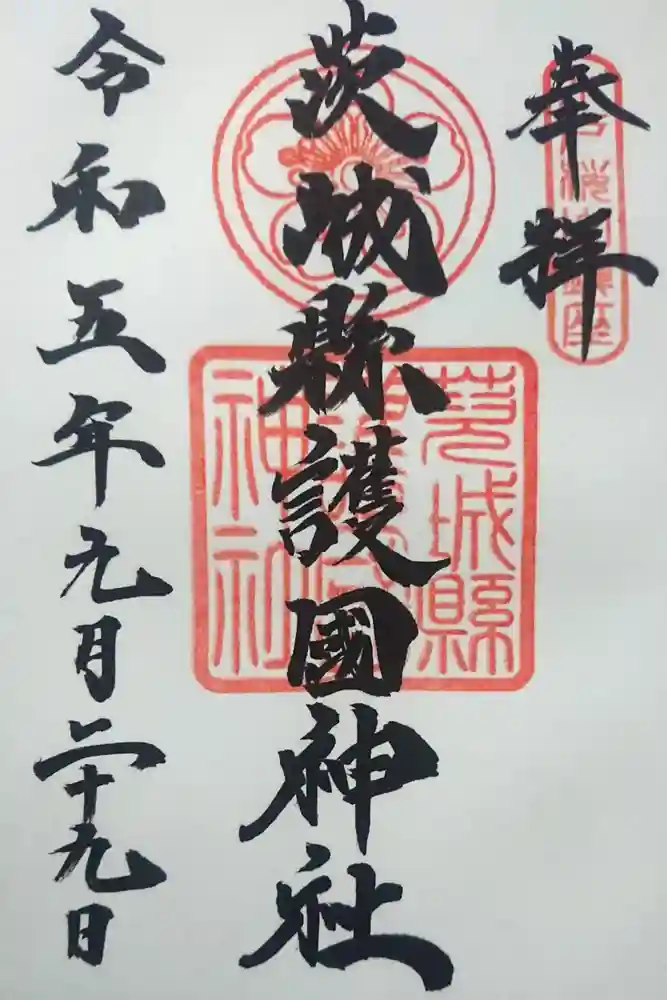 奉拝
茨城縣護國神社
令和五年元月二十九日
茨城縣
護國
神社